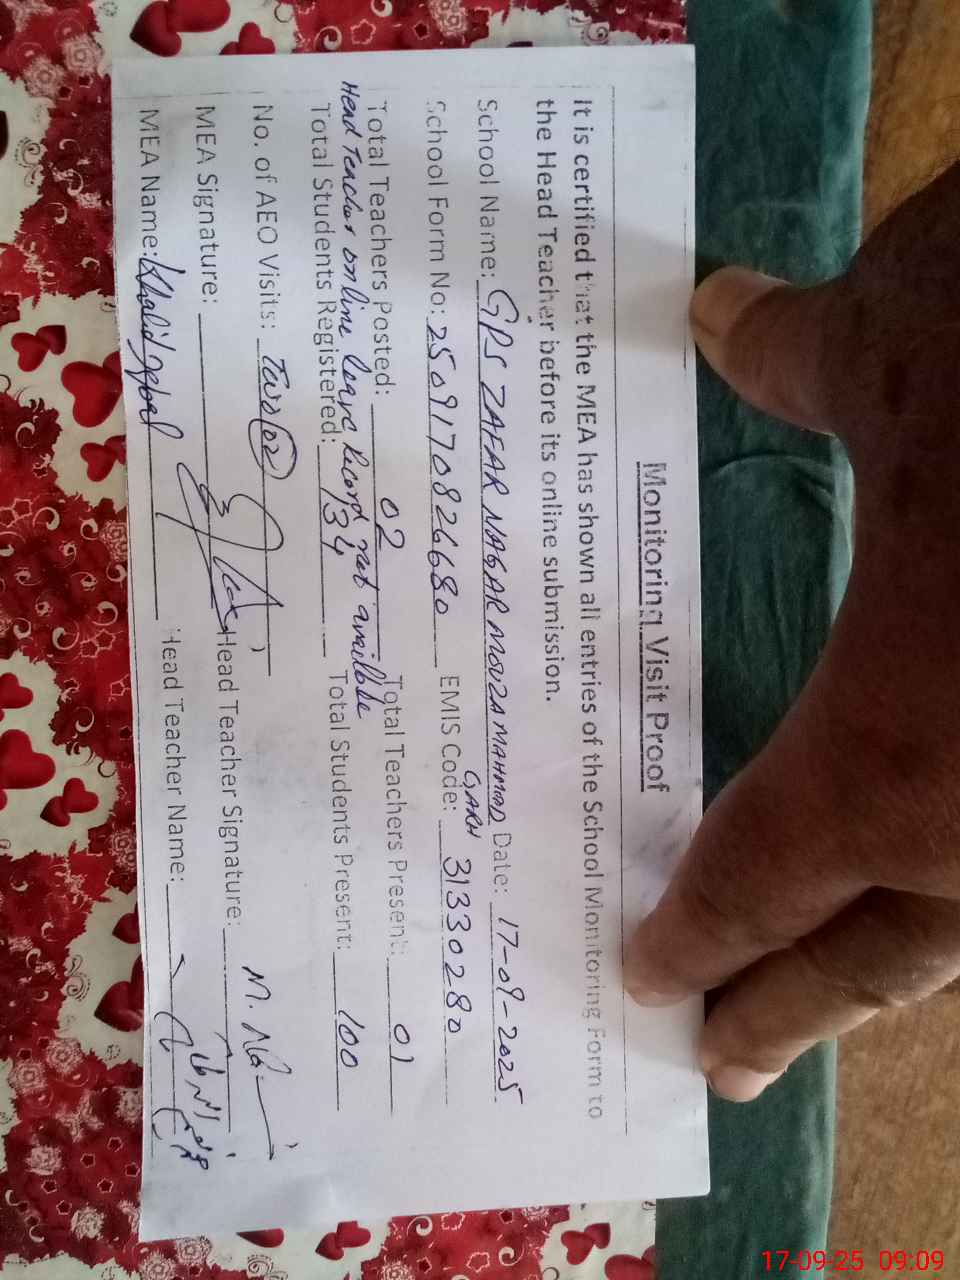 Monitoring Visit Proof
It is certified that the MEA has shown all entries of the School Monitoring Form to
the Head Teacher before its online submission.
School Name: GPS ZAFAR NAGAR MOUZA MAHMOD Date: 17-09-2025
GARH
School Form No: 2509170826680 EMIS Code: 31330280
Total Teachers Posted: 02 Total Teachers Present: 01
Head Teacher online leave record not available
Total Students Registered: 134 Total Students Present: 100
No. of AEO Visits: Two (02)
MEA Signature: Head Teacher Signature:
MEA Name: Khalid Iqbal Head Teacher Name:
17-09-25 09:09